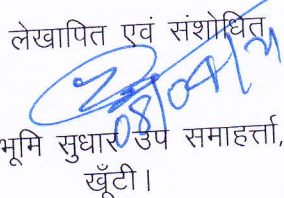 लेखापित एवं संशोधित
08/04/21
भूमि सुधार उप समाहर्त्ता,
खूँटी।